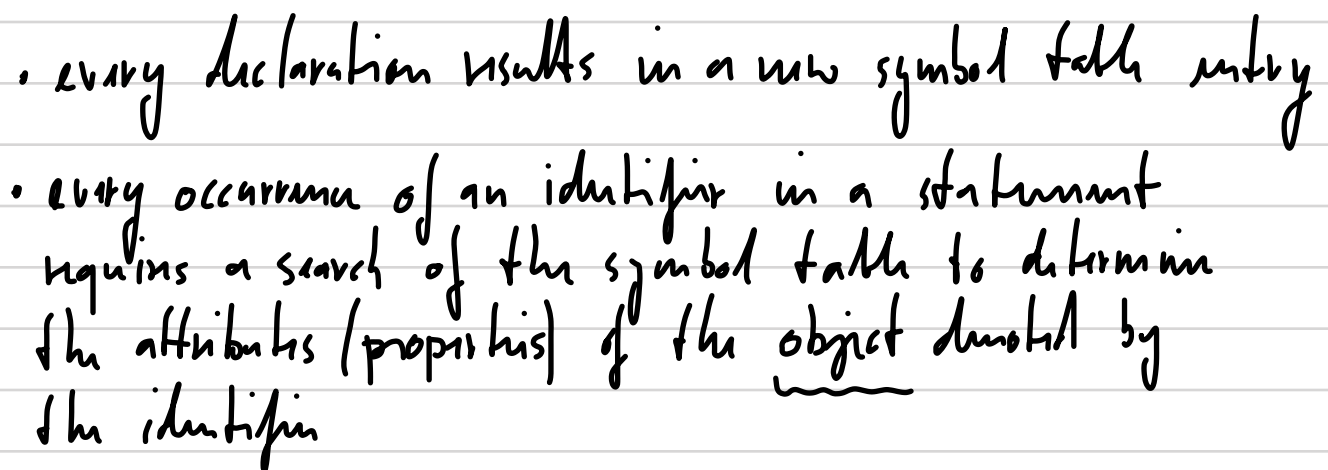 • every declaration results in a new symbol table entry
• every occurrence of an identifier in a statement
requires a search of the symbol table to determine
the attributes (properties) of the object denoted by
the identifier